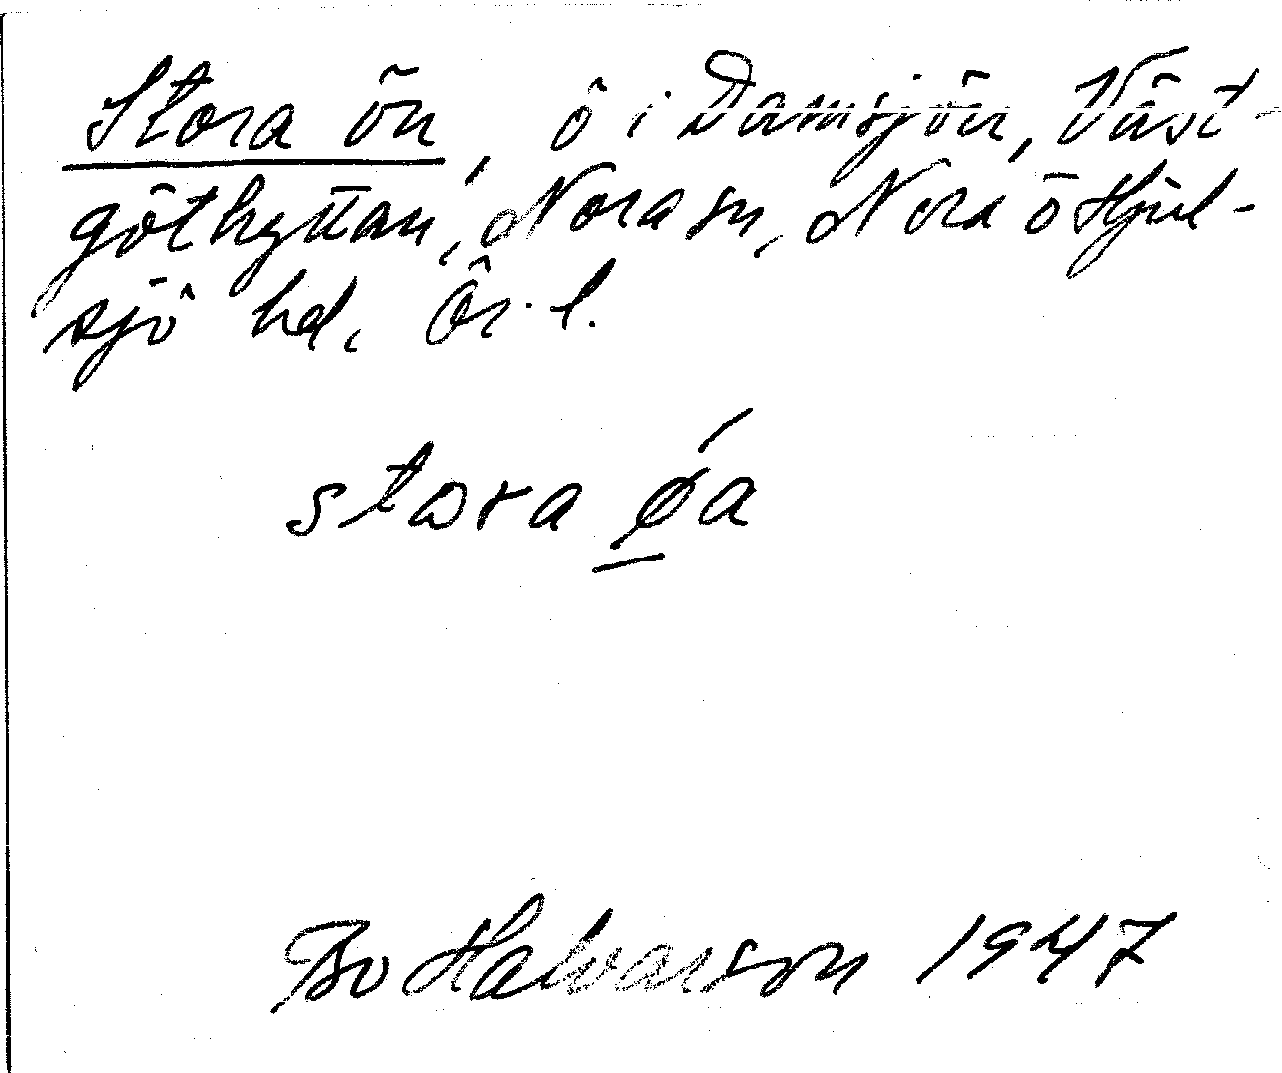 Stora ön, ö i Damsjön, Väst-
göthyttan, Nora sn, Nora o Hjul-
sjö hd, Ör. l.
stora ǿa
Bo Halvarson 1947